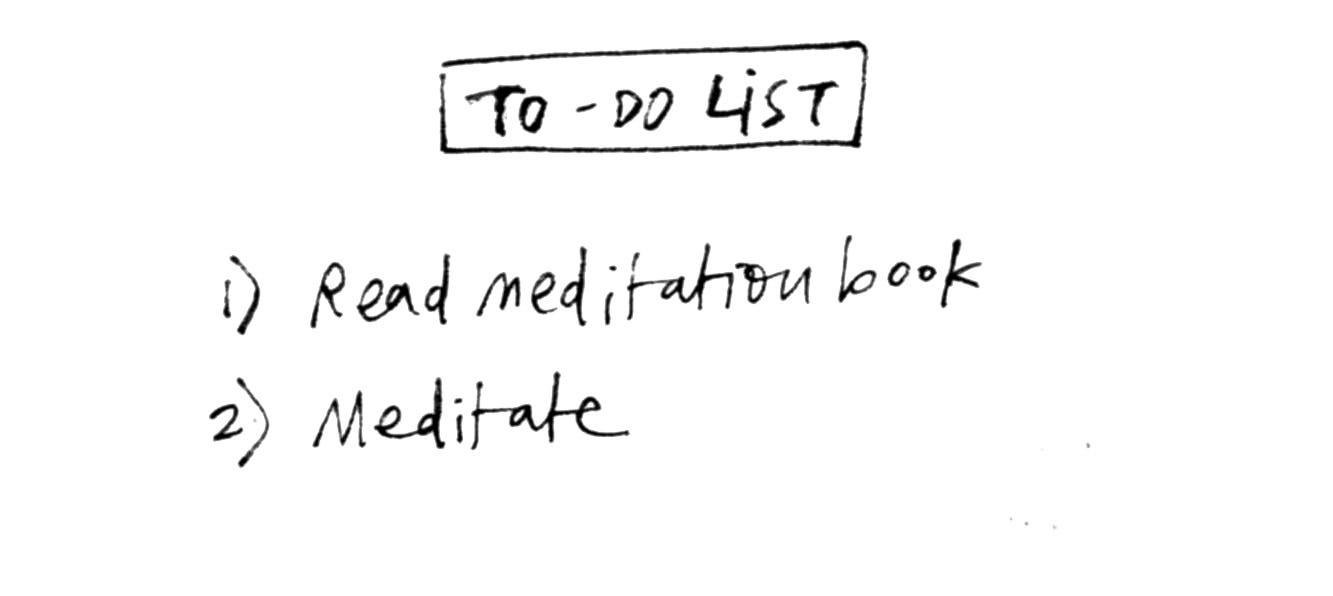 TO-DO LiST
1) Read meditation book
2) Meditate